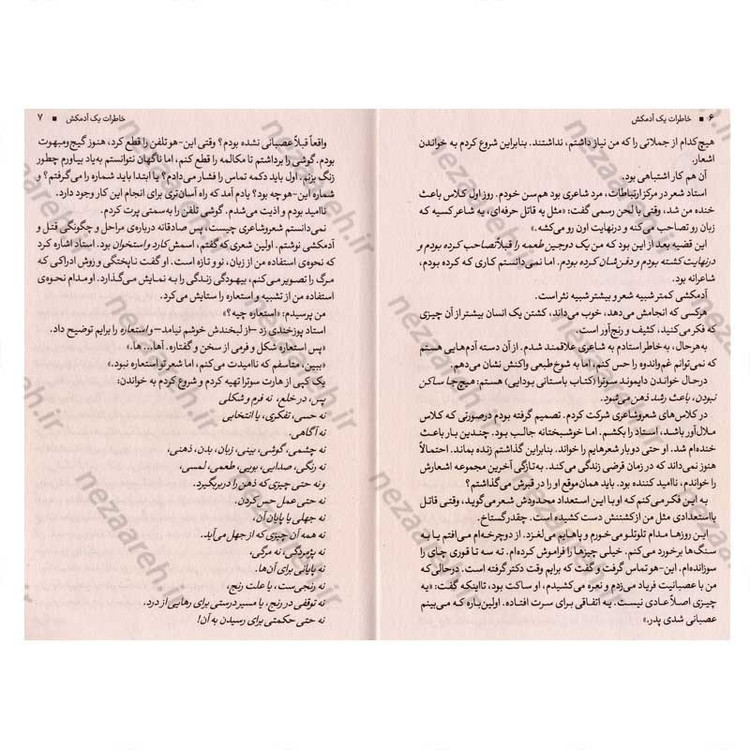 ۶ ■ خاطرات یک آدمکش
هیچ‌کدام از جملاتی را که من نیاز داشتم، نداشتند. بنابراین شروع کردم به خواندن
اشعار.
آن هم کار اشتباهی بود.
استاد شعر در مرکز ارتباطات، مرد شاعری بود هم‌سن خودم. روز اول کلاس باعث
خنده من شد، وقتی با لحن رسمی گفت: «مثل یه قاتل حرفه‌ای، یه شاعر کسیه که
زبان رو تصاحب می‌کنه و درنهایت اون رو می‌کشه.»
این قضیه بعد از این بود که من یک دوجین طعمه را قبلاً تصاحب کرده بودم و
درنهایت کشته بودم و دفن‌شان کرده بودم. اما نمی‌دانستم کاری که کرده بودم،
شاعرانه بود.
آدمکشی کمتر شبیه شعر و بیشتر شبیه نثر است.
هرکسی که انجامش می‌دهد، خوب می‌داند، کشتن یک انسان بیشتر از آن چیزی
که فکر می‌کنید، کثیف و رنج‌آور است.
به‌هرحال، به خاطر استادم به شاعری علاقمند شدم. از آن دسته آدم‌هایی هستم
که نمی‌توانم غم‌واندوه را حس کنم، اما به شوخ‌طبعی واکنش نشان می‌دهم.
در حال خواندن دایموند سوترا (کتاب باستانی بودایی) هستم: هیچ‌جا ساکن
نبودن، باعث رشد ذهن می‌شود.
در کلاس‌های شعروشاعری شرکت کردم. تصمیم گرفته بودم درصورتی که کلاس
ملال‌آور باشد، استاد را بکشم. اما خوشبختانه جالب بود. چندین بار باعث
خنده‌ام شد. او حتی دوبار شعرهایم را خواند. بنابراین گذاشتم زنده بماند. احتمالاً
هنوز نمی‌داند که در زمان قرضی زندگی می‌کند. به‌تازگی آخرین مجموعه اشعارش
را خواندم، ناامید کننده بود. باید همان‌موقع او را در قبرش می‌گذاشتم؟
به این فکر می‌کنم که او با این استعداد محدودش شعر می‌گوید، وقتی قاتل
بااستعدادی مثل من از کشتنش دست کشیده است. چقدر گستاخ.
این روزها مدام تلوتلو می‌خورم و پاهایم می‌لغزد. از دوچرخه‌ام می‌افتم یا به
سنگ‌ها برخورد می‌کنم. خیلی چیزها را فراموش کرده‌ام. ته سه تا قوری چای را
سوزانده‌ام. این-هو تماس گرفت و گفت که برایم وقت دکتر گرفته است. درحالی‌که
من با عصبانیت فریاد می‌زدم و نعره می‌کشیدم، او ساکت بود، تااینکه گفت: «یه
چیزی اصلاً عادی نیست. یه اتفاقی برای سرت افتاده. اولین‌باره که می‌بینم
عصبانی شدی پدر.»
خاطرات یک آدمکش ■ ۷
واقعاً قبلاً عصبانی نشده بودم؟ وقتی این-هو تلفن را قطع کرد، هنوز گیج‌ومبهوت
بودم. گوشی را برداشتم تا مکالمه را قطع کنم، اما ناگهان نتوانستم به‌یاد بیاورم چطور
زنگ بزنم. اول باید دکمه تماس را فشار می‌دادم؟ یا ابتدا باید شماره را می‌گرفتم؟ و
شماره این-هو چه بود؟ یادم آمد که راه آسان‌تری برای انجام این کار وجود دارد.
ناامید بودم و اذیت می‌شدم. گوشی تلفن را به‌سمتی پرت کردم.
نمی‌دانستم شعروشاعری چیست، پس صادقانه درباره‌ی مراحل و چگونگی قتل و
آدمکشی نوشتم. اولین شعری که گفتم، اسمش کارد و استخوان بود. استاد اشاره کرد
که نحوه‌ی استفاده من از زبان، نو و تازه است. او گفت ناپختگی و روش ادراکی که
مرگ را تصویر می‌کنم، بیهودگی زندگی را به نمایش می‌گذارد. او مدام نحوه‌ی
استفاده من از تشبیه و استعاره را ستایش می‌کرد.
من پرسیدم: «استعاره چیه؟»
استاد پوزخندی زد –از لبخندش خوشم نیامد– و استعاره را برایم توضیح داد.
«پس استعاره شکل و فرمی از سخن و گفتاره. آها... ها.»
«ببین، متاسفم که ناامیدت می‌کنم، اما شعر تو استعاره نبود.»
یک کپی از هارت سوترا تهیه کردم و شروع کردم به خواندن:
پس، در خلع، نه فرم و شکلی
نه حسی، تفکری، یا انتخابی
نه آگاهی.
نه چشمی، گوشی، بینی، زبان، بدن، ذهنی،
نه رنگی، صدایی، بویی، طعمی، لمسی،
و نه حتی چیزی که ذهن را دربرگیرد.
نه حتی عمل حس کردن.
نه جهلی یا پایان آن،
نه همه آن چیزی که از جهل می‌آید.
نه پژمردگی، نه مرگی،
نه پایانی برای آن‌ها.
نه رنجی‌ست، یا علت رنج،
نه توقفی در رنج، یا مسیر درستی برای رهایی از درد.
نه حتی حکمتی برای رسیدن به آن!
nezaareh.ir